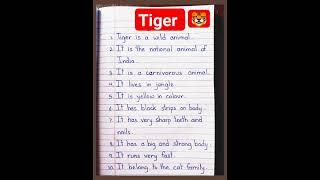 Tiger 🐯
1. Tiger is a wild animal.
2. It is the national animal of
India.
3. It is a carnivorous animal.
4. It lives in jungle.
5. It is yellow in colour.
6. It has black strips on body.
7. It has very sharp teeth and
nails.
8. It has a big and strong body.
9. It runs very fast.
10. It belong to the cat family.